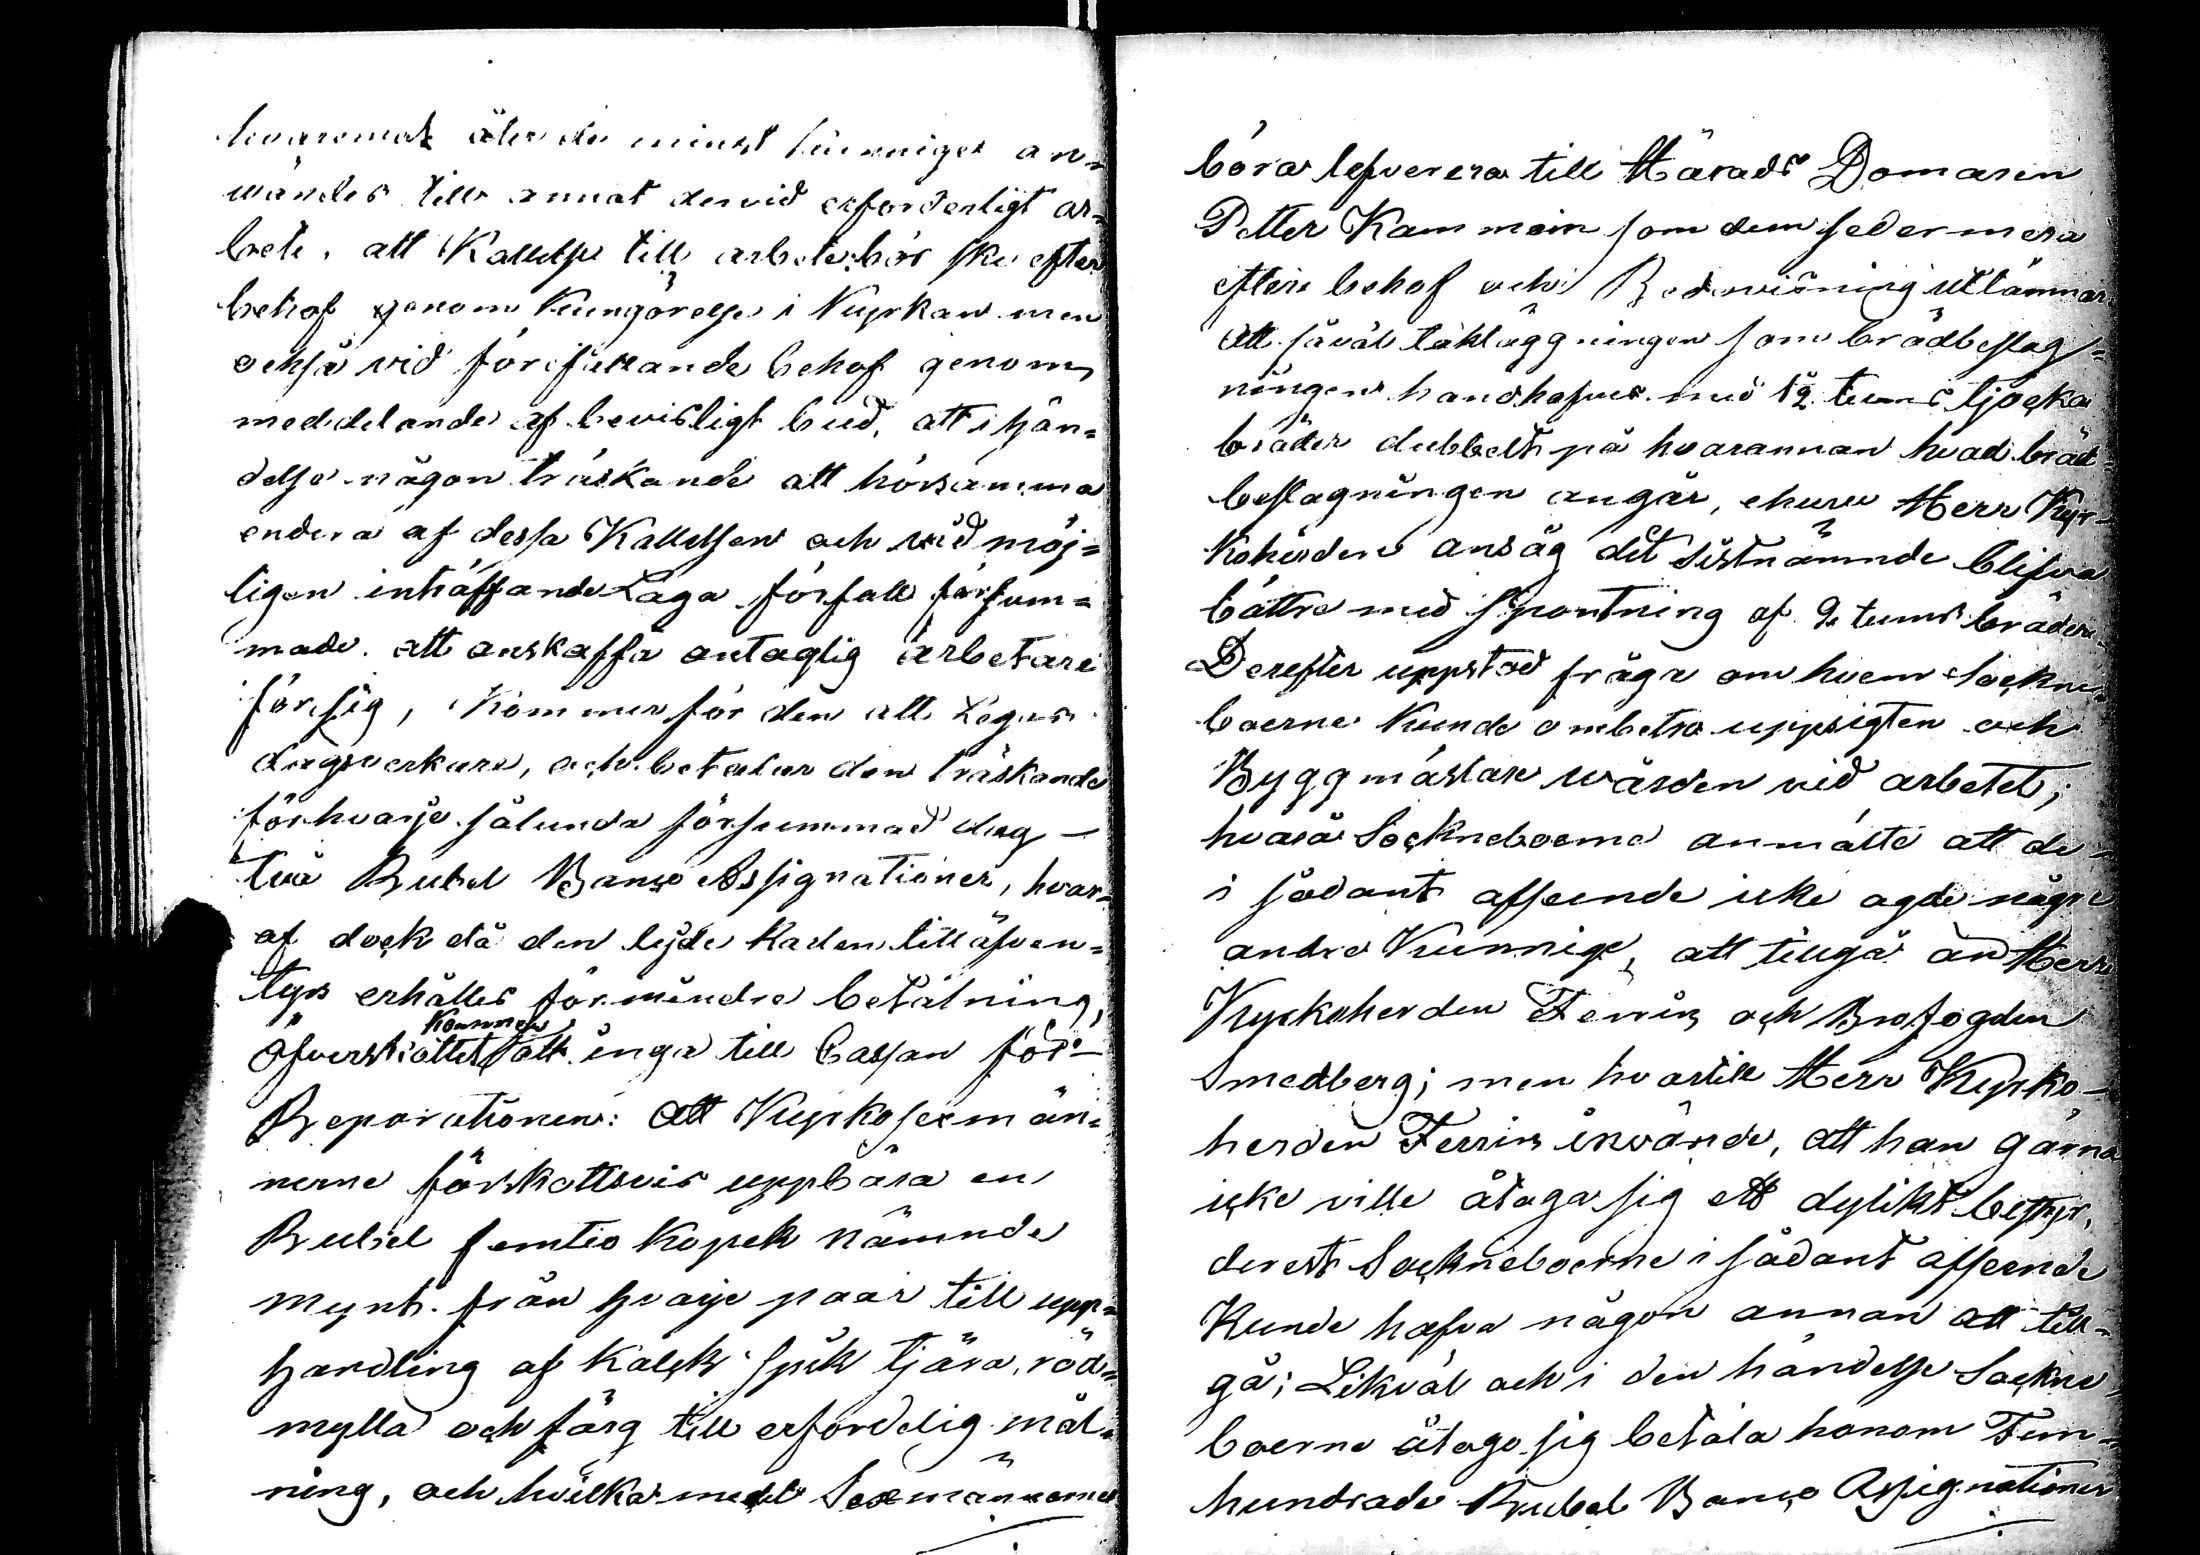 hvaremot åter de minst kunniges an-
wändes till annat dervid erforderligt ar-
bete. att Kallelse till arbete bör ske efter
behof genom Kungörelse i Kyrkan men
också vid förefallande behof genom
meddelande af bevisligt bud, att i hän-
delse någon träskande att hörsamma
endera af dessa Kallelser och vid möj-
ligen inträffande Laga förfall försum-
made. att anskaffa antaglig arbetare
för sig, Kommer för den att Legas
dagsverkare, och betalar den träskande
för hvarje sålunda försummad dag -
två Rubel Banco Assignationer, hvar-
af dock då den lejde Karlen till äfven-
tyrs erhålles för mindre betalning,
Öfverskottet Kommer att inga till Cassan för -
Reparationen: att Kyrkosexmän-
nerne förskottsvis uppbära en
Rubel femtio Kopek nämnde
mynt. från hvarje paar till upp-
handling af Kalck spik tjära, röd-
mylla och färg till erforderlig mål-
ning, och hvilka medel Sexmännerne
böra lefverera till Härads Domaren
Petter Kammoin som dem sedermera
efter behof och Redovisning utlämnar.
Att såväl takläggningen som brädbeslag-
ningen handhafves med 1½ tums tjocka
bräder dubbelt på hvarannan hvad bräd-
beslagningen angår, ehuru Herr Kyr-
Koherden ansåg det sistnämnde blifva
bättre med spontning af 2 tums bräder.
Derefter uppstod fråga om hvem Sockne-
boerne Kunde ombetro uppsigten och
Byggmästare wården vid arbetet;
hvarå Sockneboerne anmälte att de
i sådant afseende icke ägde någre
andre Kunnige, att tillgå än Herr
Kyrkoherden Ferrin och Brofogden
Smedberg; men hvartill Herr Kyrko-
herden Ferrin invände, att han gärna
icke ville åtaga sig ett dylikt bestyr,
derest Sockneboerne i sådant afseende
Kunde hafva någon annan att till-
gå; Likväl och i den händelse Sockne-
boerne åtogo sig betala honom Fem-
hundrade Rubel Banco Assignationer